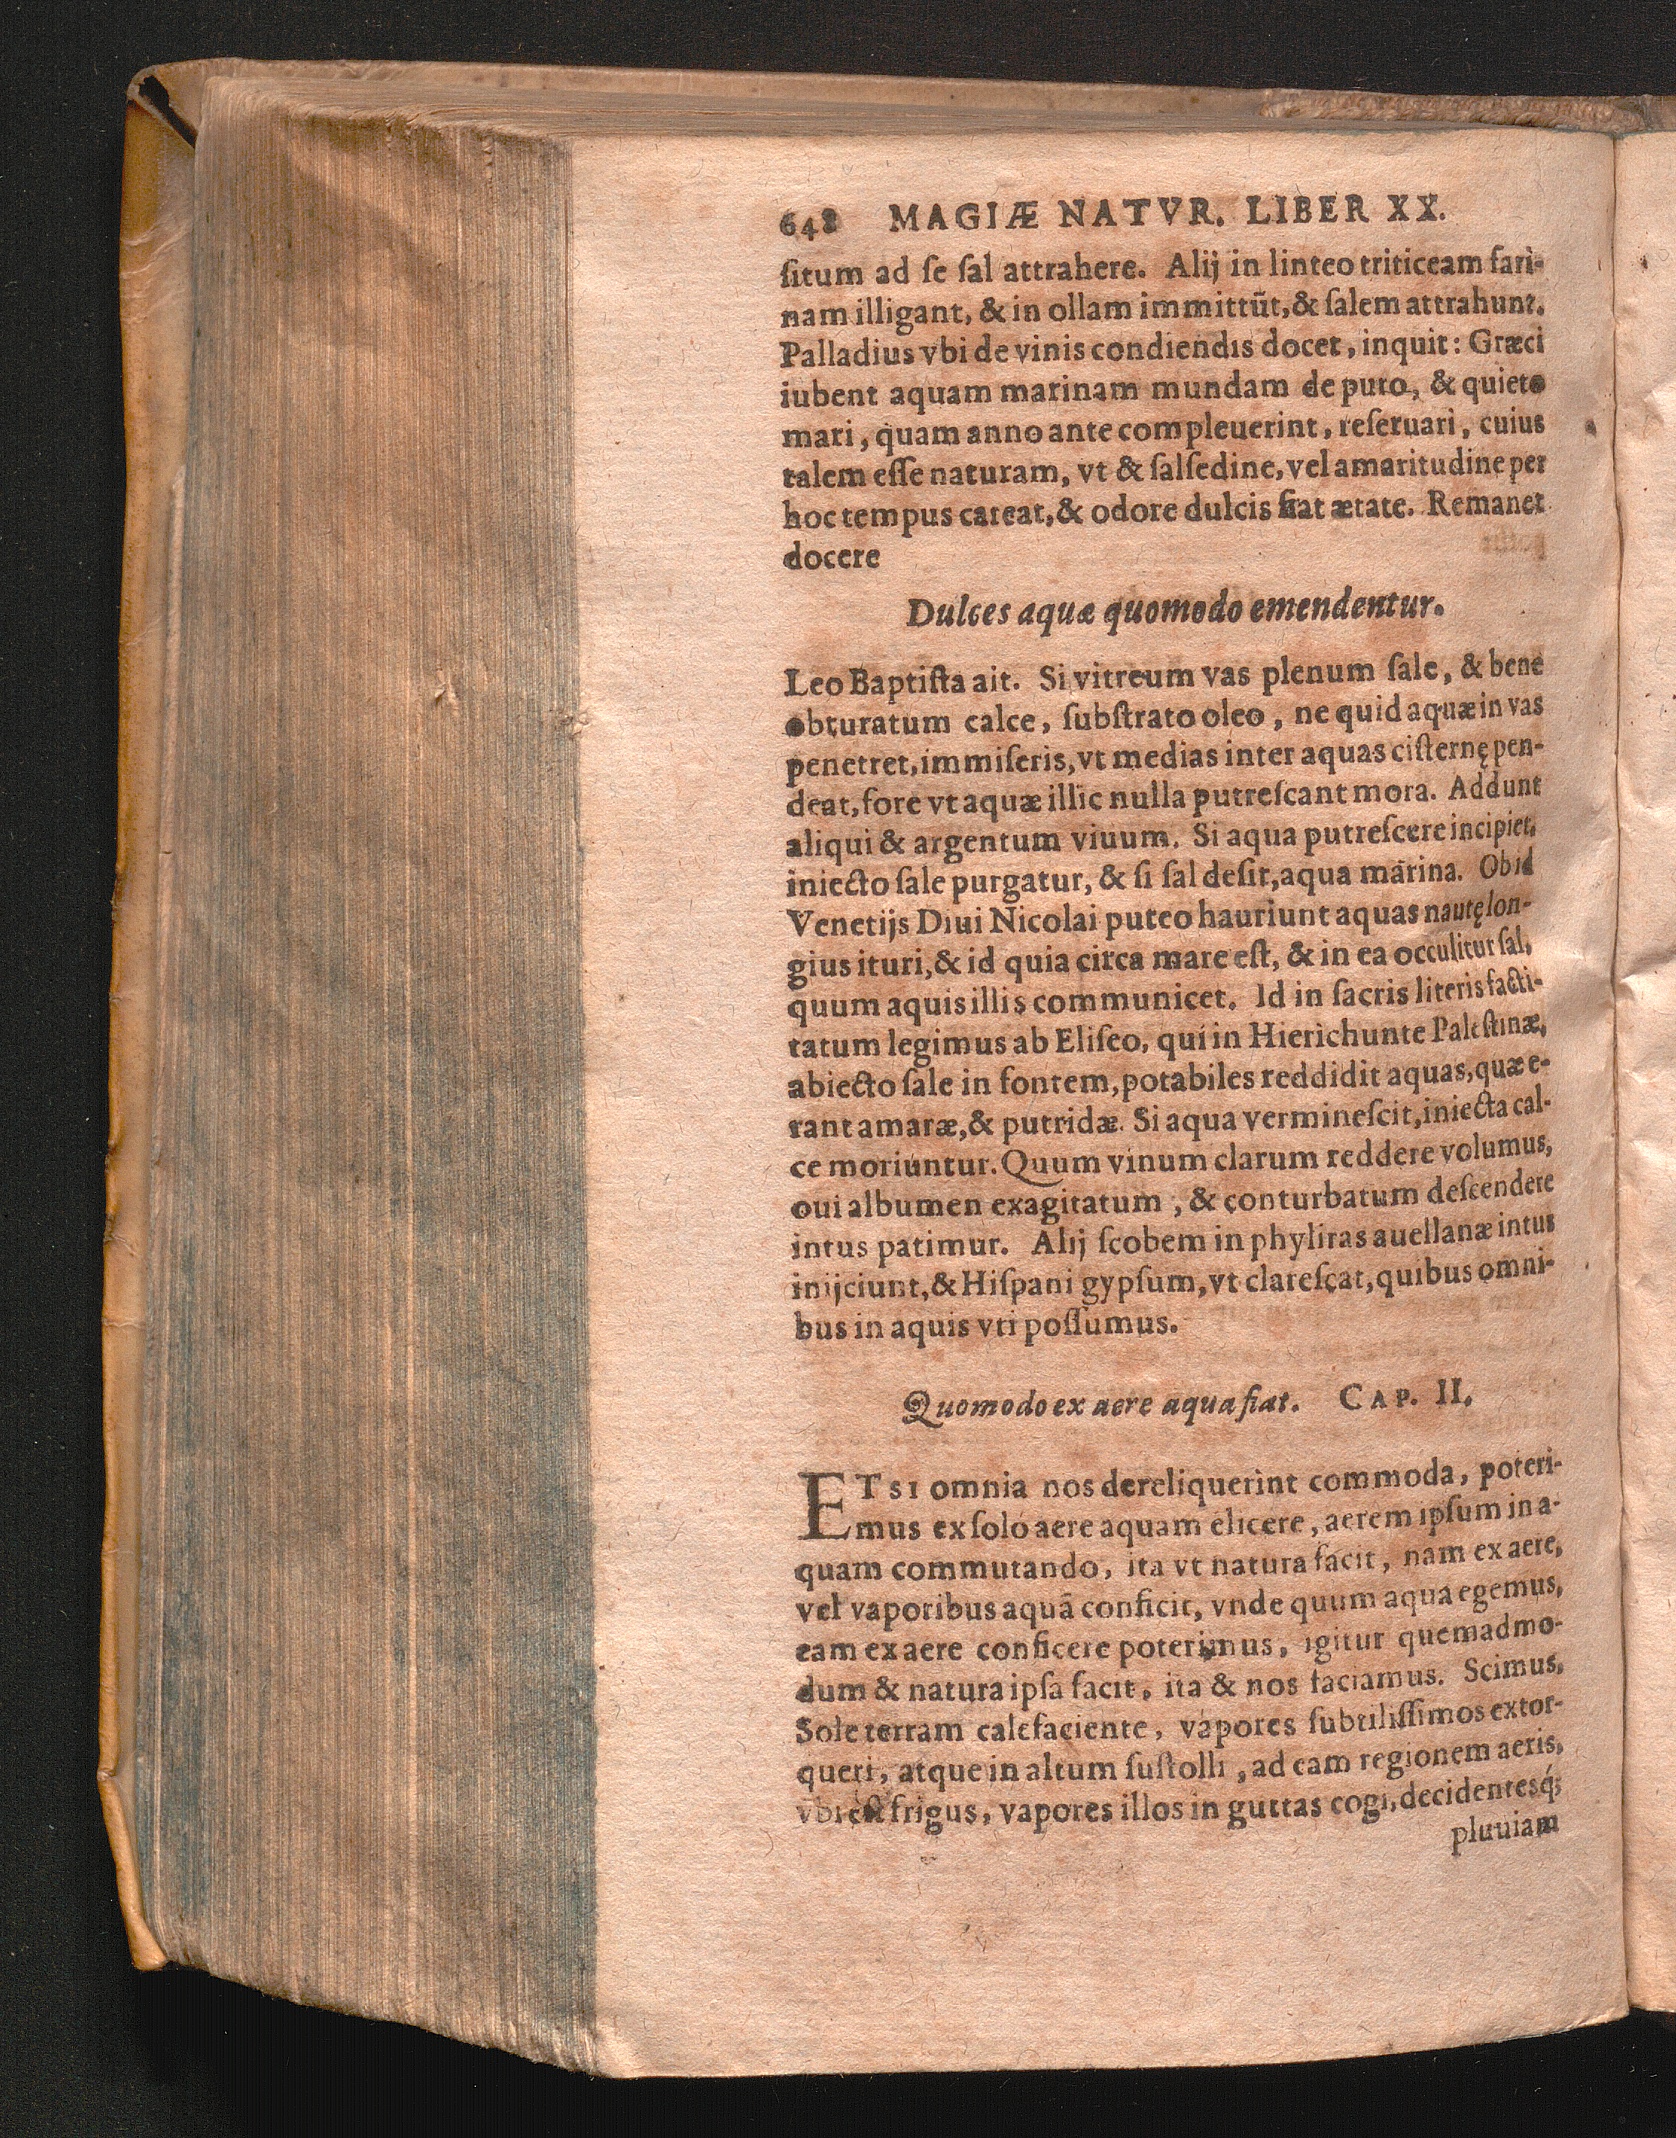 648 MAGIÆ NATVR. LIBER XX.
ſitum ad ſe ſal attrahere. Alij in linteo triticeam fari-
nam illigant, & in ollam immittūt, & ſalem attrahunt.
Palladius vbi de vinis condiendis docet, inquit: Græci
iubent aquam marinam mundam de puro, & quieto
mari, quam anno ante compleuerint, reſeruari, cuius
talem eſſe naturam, vt & ſalſedine, vel amaritudine per
hoc tempus careat, & odore dulcis fiat ætate. Remanet
docere
Dulces aquæ quomodo emendentur.
Leo Baptiſta ait. Si vitreum vas plenum ſale, & bene
obturatum calce, ſubſtrato oleo, ne quid aquæ in vas
penetret, immiſeris, vt medias inter aquas ciſternę pen-
deat, fore vt aquæ illic nulla putreſcant mora. Addunt
aliqui & argentum viuum. Si aqua putreſcere incipiet,
iniecto ſale purgatur, & ſi ſal deſit, aqua marina. Ob id
Venetijs Diui Nicolai puteo hauriunt aquas nautę lon-
gius ituri, & id quia circa mare eſt, & in ea occulitur ſal,
quum aquis illis communicet. Id in ſacris literis facti-
tatum legimus ab Eliſeo, qui in Hierichunte Paleſtinæ,
abiecto ſale in fontem, potabiles reddidit aquas, quæ e-
rant amaræ, & putridæ. Si aqua vermineſcit, iniecta cal-
ce moriuntur. Quum vinum clarum reddere volumus,
oui albumen exagitatum, & conturbatum deſcendere
intus patimur. Alij ſcobem in phyliras auellanæ intus
inijciunt, & Hiſpani gypſum, vt clareſcat, quibus omni-
bus in aquis vti poſſumus.
Quomodo ex aere aqua fiat. CAP. II.
ETSI omnia nos dereliquerint commoda, poteri-
mus ex ſolo aere aquam elicere, aerem ipſum in a-
quam commutando, ita vt natura facit, nam ex aere,
vel vaporibus aquā conficit, vnde quum aqua egemus,
eam ex aere conficere poterimus, igitur quemadmo-
dum & natura ipſa facit, ita & nos faciamus. Scimus,
Sole terram calefaciente, vapores ſubtiliſſimos extor-
queri, atque in altum ſuſtolli, ad eam regionem aeris,
vbi eſt frigus, vapores illos in guttas cogi, decidentesq́;
pluuiam